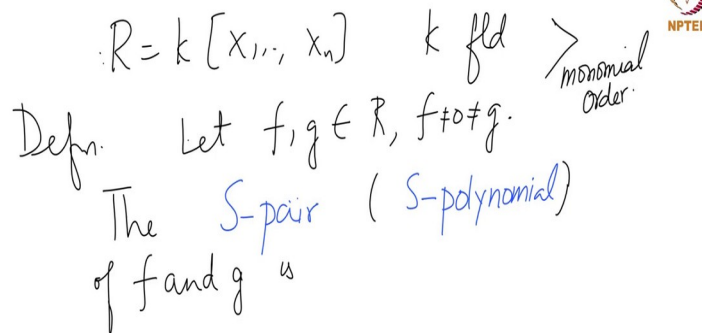 R = k[x₁,.., xₙ] k fld > monomial order.
Defn. Let f, g ∈ R, f ≠ 0 ≠ g.
The S-pair ( S-polynomial)
of f and g is
NPTEL